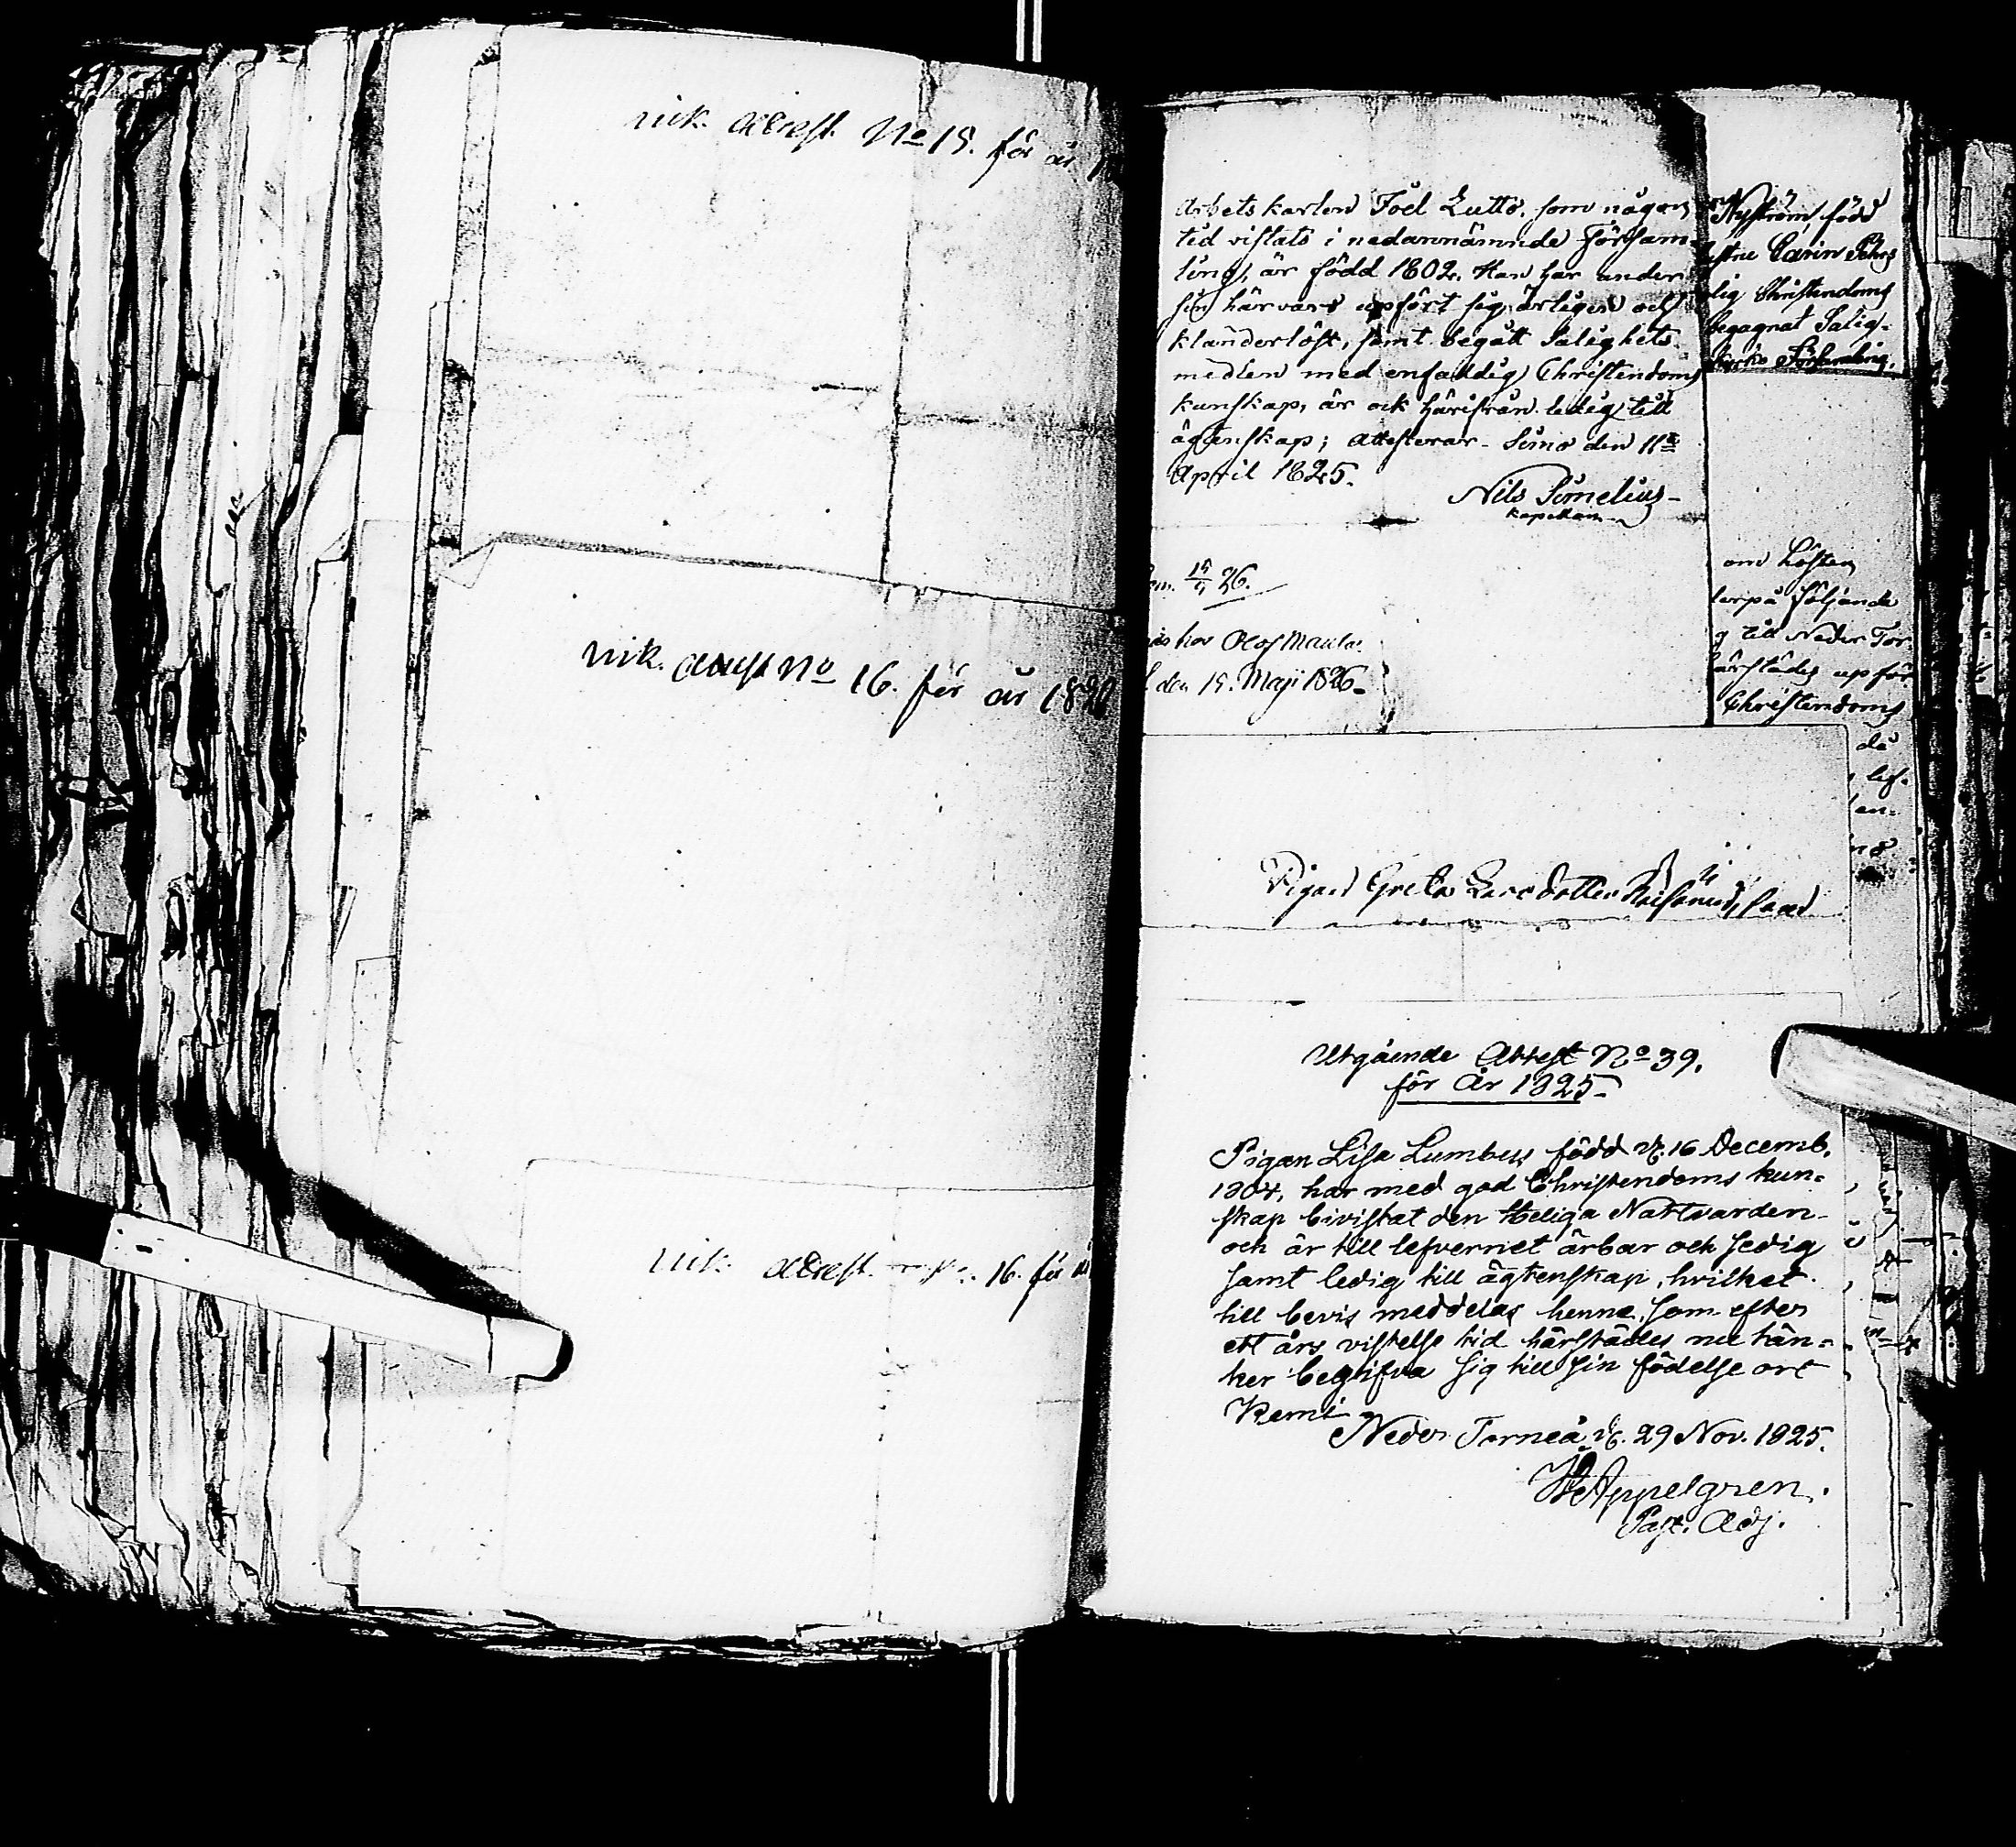 ink. attest No 15. för år
ink. attest No 16. för år 1820
ink. attest 16. för år
Arbetskarlen Joel Lutto, som någon
tid vistats i nedannämnde Försam-
ling, är född 1802. Han har under
sin härvaro upfört sig ärligen och
klanderlöst, samt begått Salighets
medlen med enfaldig Christendoms
kunskap, är ock härifrån ledig till
ägtenskap; attesterar. Simo den 11te
April 1825.
Nils Pimelius
Kapellan
15/5 26.
hos Olof Maula
den 15. Maji 1826.
Nyström, född
Carin Pehrs
lig Christendoms
begagnat Salig-
Församling.
om hösten
derpå följande
g till Neder Tor
därstädes upför
Christendoms
då
lef-
en-
Pigan Greta Larsdotter
Utgående Attest No 39.
för År 1825.
Pigan Lisa Lumbus född d. 16 Decemb.
1804, har med god Christendoms kun-
skap bivistat den Heliga Nattvarden
och är till lefvernet ärbar och sedig
samt ledig till ägtenskap, hvilket
till bevis meddelas henne, som efter
ett års vistelse tid härstädes nu tän-
ker begifva sig till sin födelse ort
Kemi.
Neder Torneå d. 29 Nov. 1825.
Appelgren.
Past. Adj.